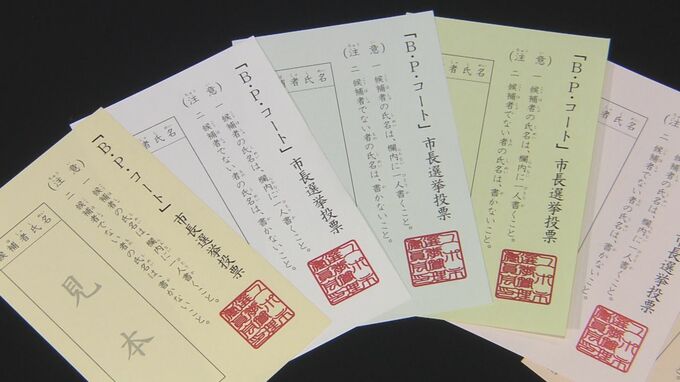 「B・P・コート」市長選挙投票
(注意)
一 候補者の氏名は、欄内に一人書くこと。
二 候補者でない者の氏名は、書かないこと。
候補者氏名
見本
「B・P・コート」市長選挙投票
(注意)
一 候補者の氏名は、欄内に一人書くこと。
二 候補者でない者の氏名は、書かないこと。
者氏名
「B・P・コート」市長選挙投票
(注意)
一 候補者の氏名は、欄内に一人書くこと。
二 候補者でない者の氏名は、書かないこと。
者氏名
「B・P・コート」市長選挙投票
(注意)
一 候補者の氏名は、欄内に一人書くこと。
二 候補者でない者の氏名は、書かないこと。
者氏名